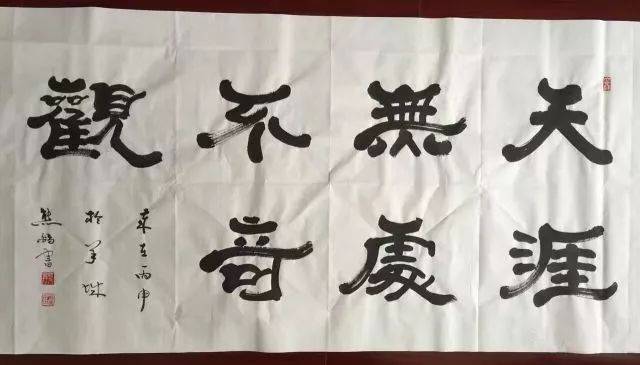 天涯
無處
不奇
觀
歲在丙申
於羊城
熊